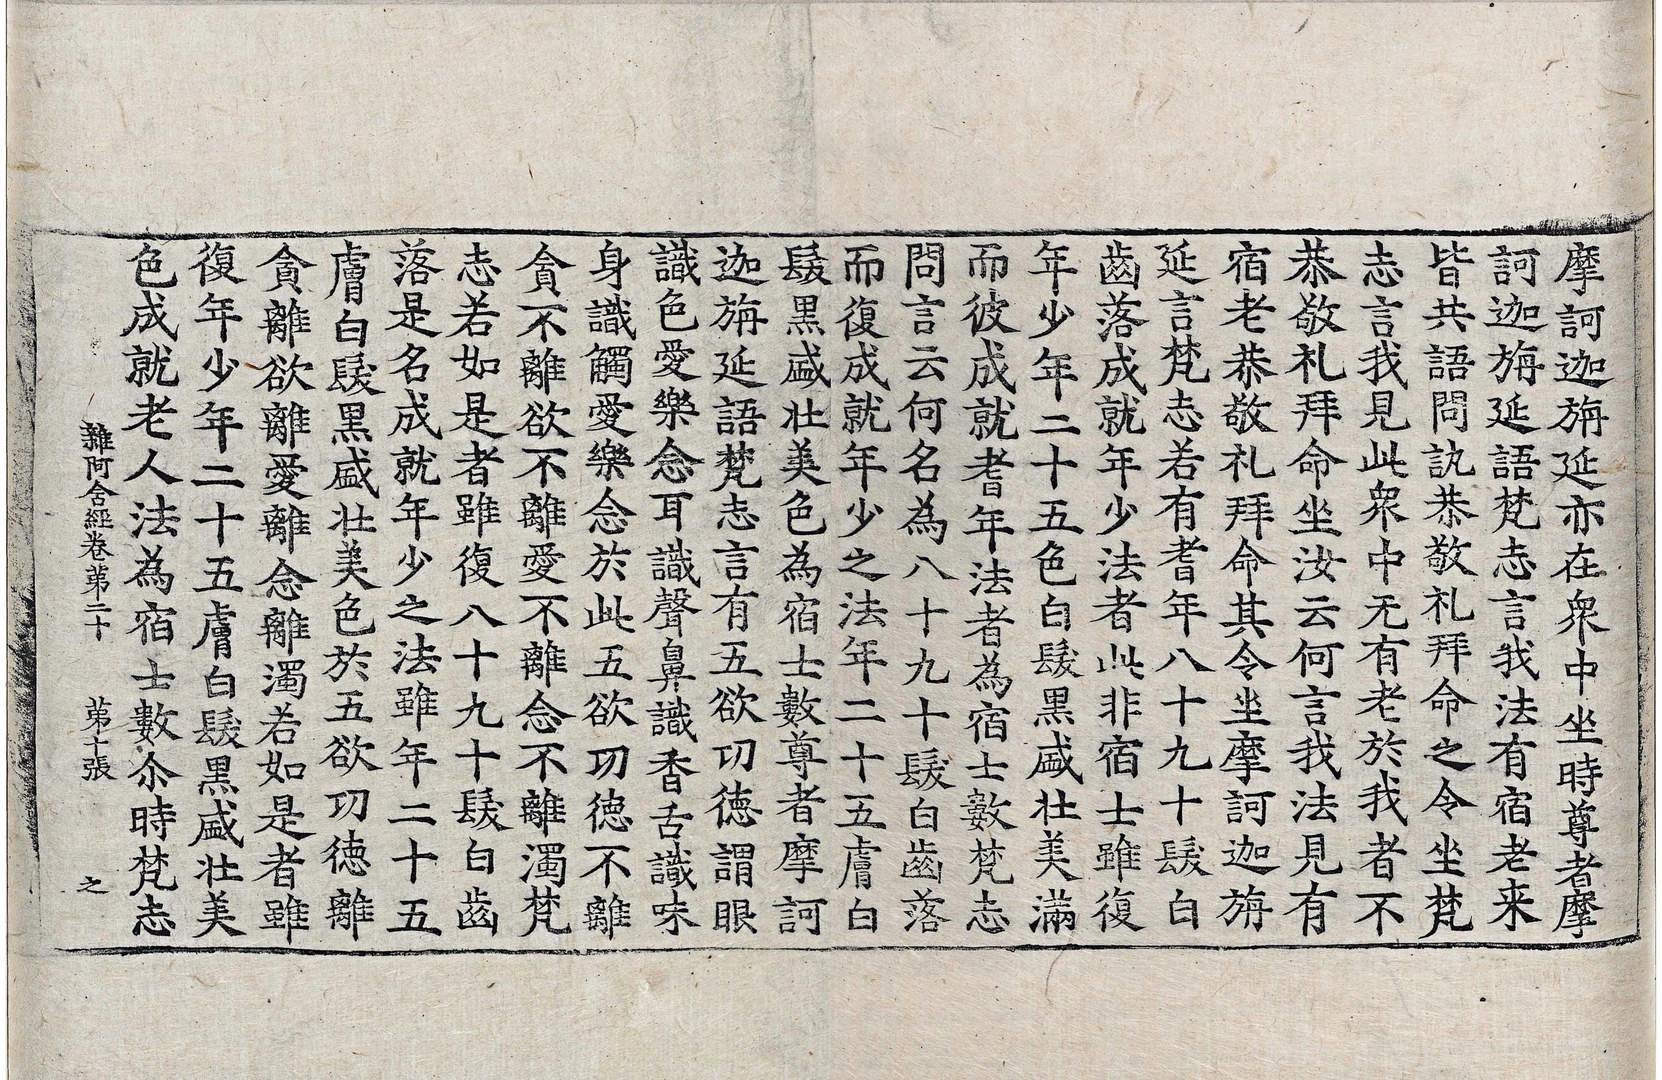 摩訶迦旃延亦在衆中坐時尊者摩
訶迦旃延語梵志言我法有宿老来
皆共語問訊恭敬礼拜命之令坐梵
志言我見此衆中无有老於我者不
恭敬礼拜命坐汝云何言我法見有
宿老恭敬礼拜命其令坐摩訶迦旃
延言梵志若有耆年八十九十髮白
齒落成就年少法者此非宿士雖復
年少年二十五色白髮黒盛壮美滿
而彼成就耆年法者為宿士數梵志
問言云何名為八十九十髮白齒落
而復成就年少之法年二十五膚白
髮黒盛壮美色為宿士數尊者摩訶
迦旃延語梵志言有五欲功德謂眼
識色愛樂念耳識聲鼻識香舌識味
身識觸愛樂念於此五欲功德不離
貪不離欲不離愛不離念不離濁梵
志若如是者雖復八十九十髮白齒
落是名成就年少之法雖年二十五
膚白髮黒盛壮美色於五欲功德離
貪離欲離愛離念離濁若如是者雖
復年少年二十五膚白髮黒盛壮美
色成就老人法為宿士數尒時梵志
雜阿含經卷苐二十 苐十張 之